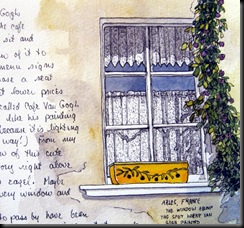 Gogh
the cafe
sit and
ew of it to
menu signs
have a seat
t lower prices
called Cafe Van Gogh
like his painting
because it is lighting
way.) From my
w of this cute
ory right above
easel. Maybe
very window and
to pass by have been
ARLES, FRANCE
THE WINDOW ABOVE
THE SPOT WHERE VAN
GOGH PAINTED